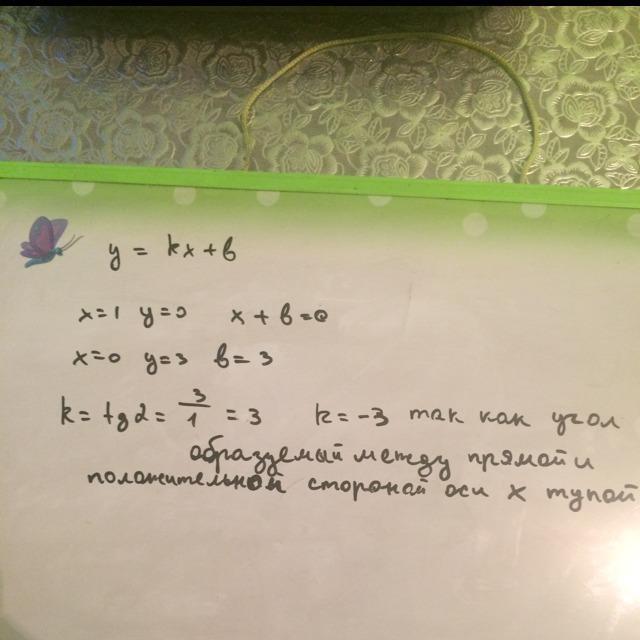 y = kx + b
x=1 y=0 x + b = 0
x=0 y=3 b = 3
k = tg α = 3/1 = 3 k = -3 так как угол
образуемый между прямой и
положительной стороной оси x тупой